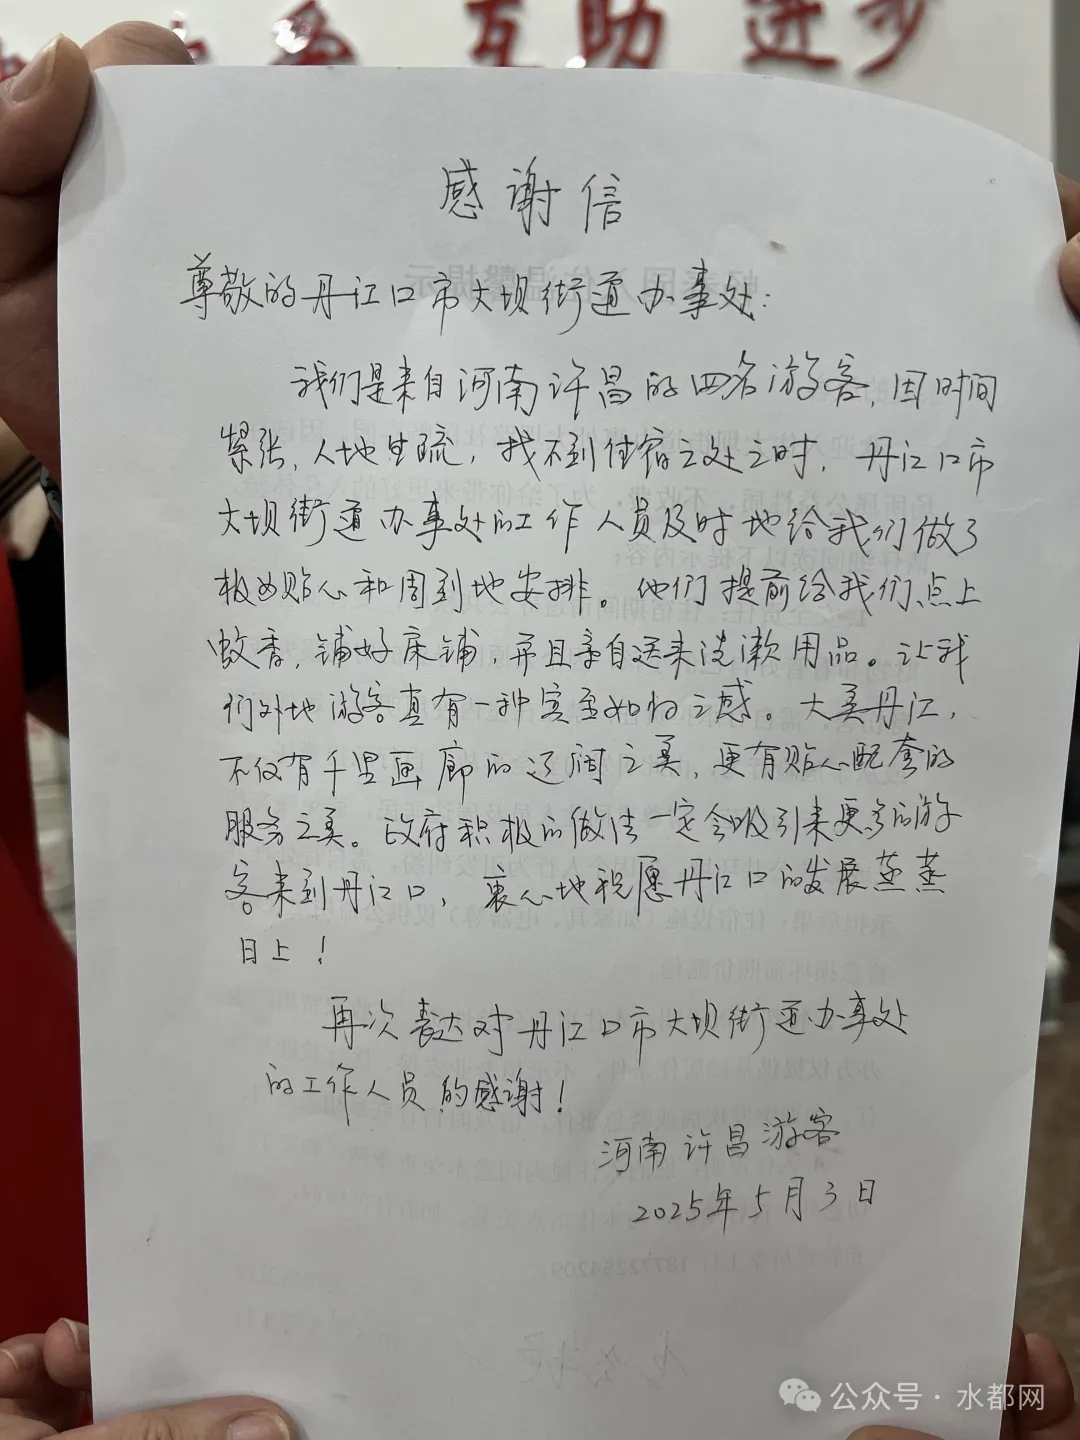 互助 进步
感谢信
尊敬的丹江口市大坝街道办事处：
我们是来自河南许昌的四名游客，因时间
紧张，人地生疏，找不到住宿之处之时，丹江口市
大坝街道办事处的工作人员及时地给我们做了
极为贴心和周到地安排。他们提前给我们点上
蚊香，铺好床铺，并且亲自送来洗漱用品。让我
们外地游客真有一种宾至如归之感。大美丹江，
不仅有千里画廊的辽阔之美，更有贴心配套的
服务之美。政府积极的做法一定会吸引来更多的游
客来到丹江口，衷心地祝愿丹江口的发展蒸蒸
日上！
再次表达对丹江口市大坝街道办事处
的工作人员的感谢！
河南许昌游客
2025年5月3日
公众号·水都网